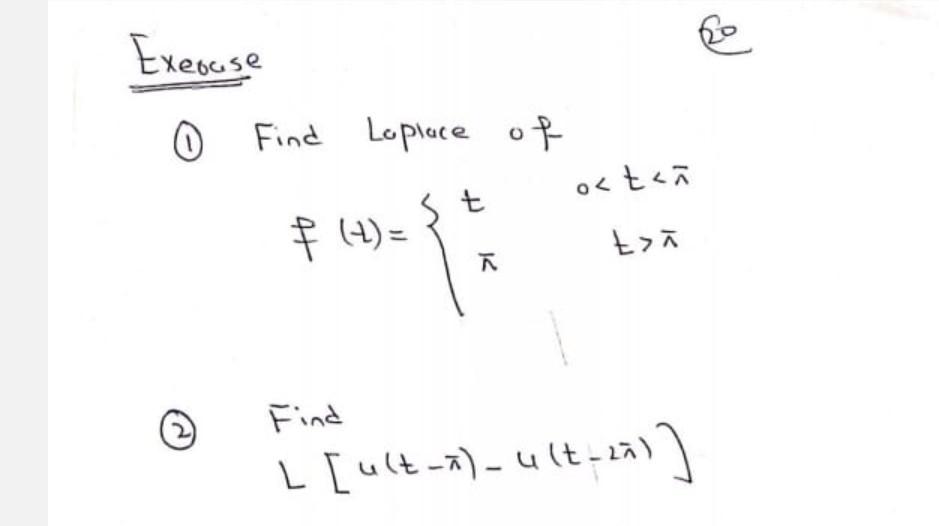 20
Exercise
① Find Laplace of
f(t) = { t 0 < t < π
π t > π
② Find
L [u(t-π) - u(t-2π)]